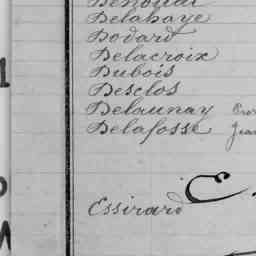 Delahaye
Dodard
Delacroix
Dubois
Desclos
Delaunay
Delafosse Jean
E
Essirard